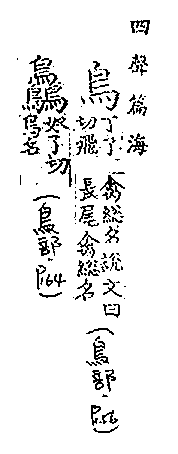 四聲篇海
鳥丁了二禽總名說文曰
切飛長尾禽總名
(鳥部·P.56)
奴了切
鳥名
(鳥部·P.164)